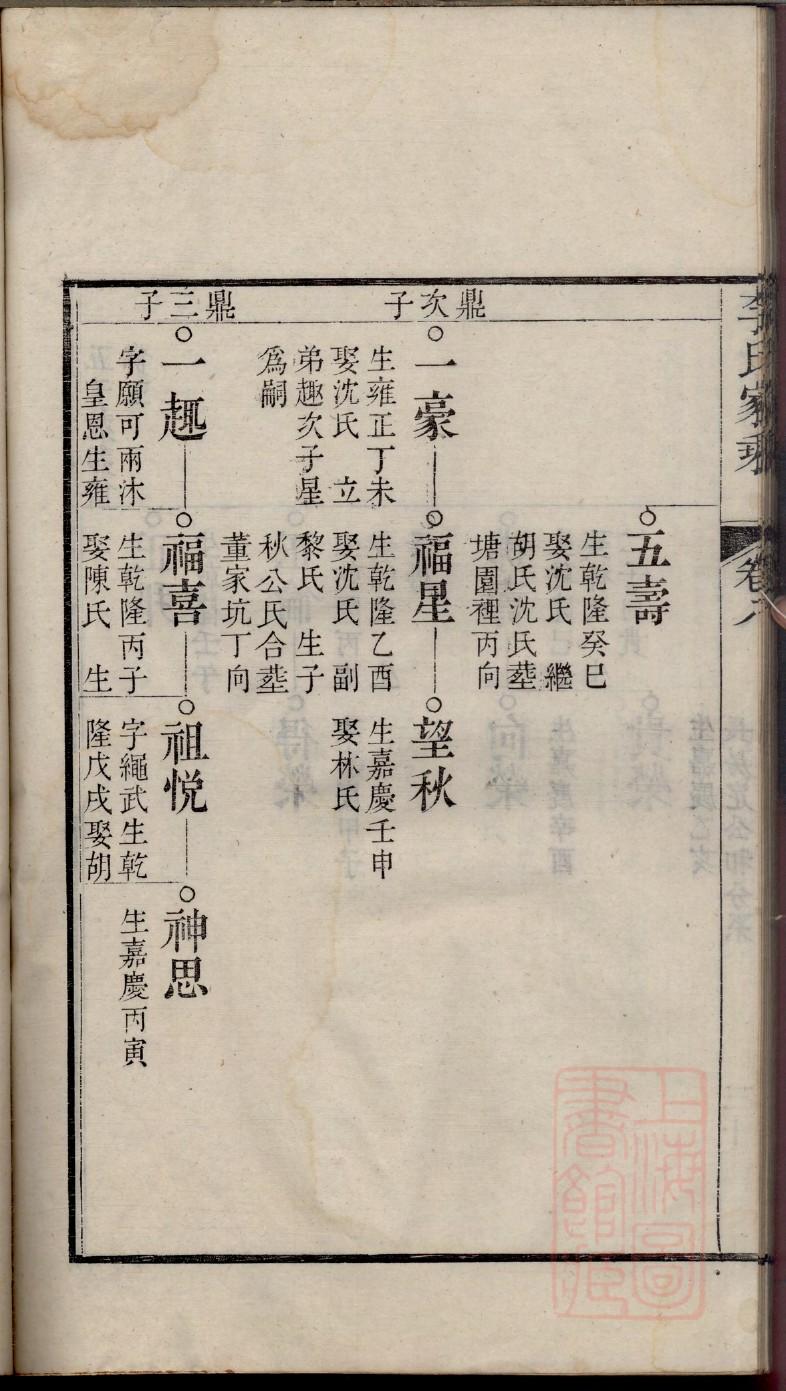 李氏家乘
卷六
五壽
生乾隆癸巳
娶沈氏 繼
胡氏沈氏塟
塘園裡丙向
鼎次子
一豪
生雍正丁未
娶沈氏 立
弟趣次子星
爲嗣
福星
生乾隆乙酉
娶沈氏 副
黎氏 生子
秋公氏合塟
董家坑丁向
望秋
生嘉慶壬申
娶林氏
鼎三子
一趣
字願可兩沐
皇恩生雍
福喜
生乾隆丙子
娶陳氏 生
祖悦
字繩武生乾
隆戊戌娶胡
神思
生嘉慶丙寅
上海圖
書館藏